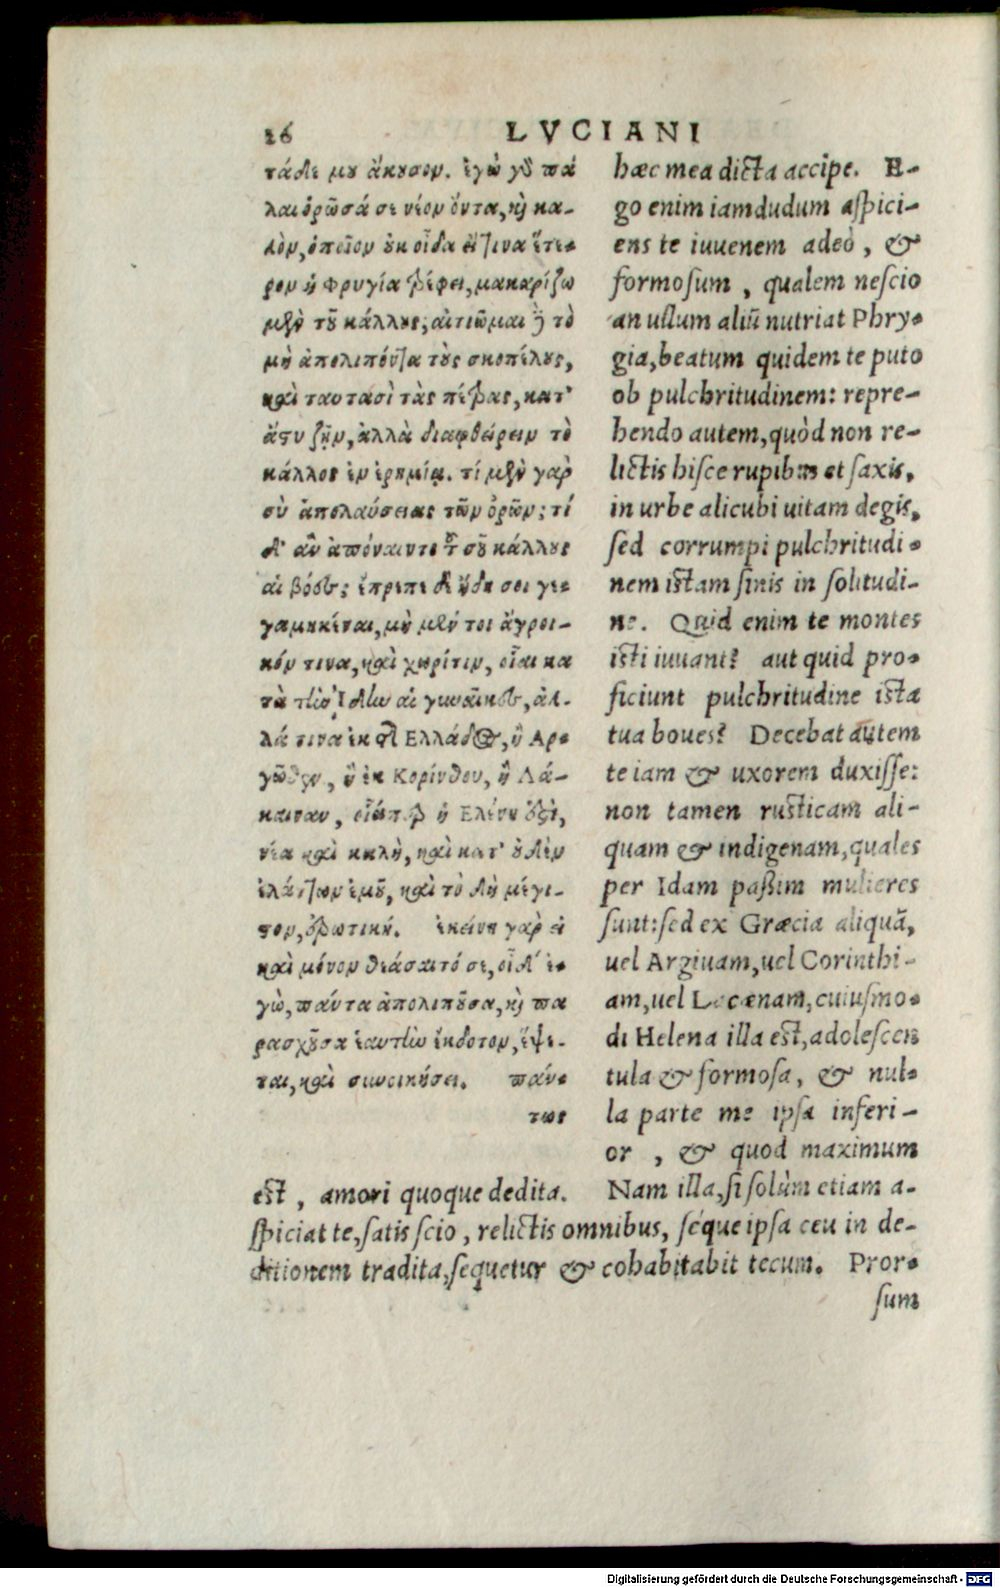 26 LVCIANI
τάδε μου ἄκουσον. ἐγὼ γὸ πά
λαι ὁρῶσά σε νέον ὄντα, καὶ κα-
λὸν, ὁποῖον οὐκ οἶδα εἴ τινα ἕτε-
ρον ἡ Φρυγία τρέφει, μακαρίζω
μὲν τοῦ κάλλους, αἰτιῶμαι δὲ τὸ
μὴ ἀπολιπόντα τοὺς σκοπέλους,
καὶ ταυτασὶ τὰς πέτρας, κατ'
ἄστυ ζῇν, ἀλλὰ διαφθείρειν τὸ
κάλλος ἐν ἐρημίᾳ. τί μὲν γὰρ
σὺ ἀπολαύσειας τῶν ὀρῶν; τί
δ' ἂν ἀπόναιντο τοῦ σοῦ κάλλους
αἱ βόες; ἔπρεπε δὲ ἤδη σοι γε-
γαμηκέναι, μὴ μέν τοι ἄγροι-
κόν τινα, καὶ χωρίτιν, οἷαι κα
τὰ τὴν Ἴδην αἱ γυναῖκες, ἀλ-
λά τινα ἐκ τῆς Ἑλλάδος, ἢ Ἀρ-
γόθεν, ἢ ἐκ Κορίνθου, ἢ Λά-
καιναν, οἵαπερ ἡ Ἑλένη ἐστὶ,
νέα καὶ καλὴ, καὶ κατ' οὐδὲν
ἐλάττων ἐμοῦ, καὶ τὸ δὴ μέγι-
στον, ἐρωτική. ἐκείνη γὰρ εἰ
καὶ μόνον θεάσαιτό σε, οἶδ' ἐ-
γὼ, πάντα ἀπολιποῦσα, καὶ πα
ρασχοῦσα ἑαυτὴν ἔκδοτον, ἕψε-
ται, καὶ συνοικήσει. πάν-
τως
hæc mea dicta accipe. E-
go enim iamdudum aspici-
ens te iuuenem adeò, &
formosum, qualem nescio
an ullum aliũ nutriat Phry-
gia, beatum quidem te puto
ob pulchritudinem: repre-
hendo autem, quòd non re-
lictis hisce rupibus et saxis,
in urbe alicubi uitam degis,
sed corrumpi pulchritudi-
nem istam sinis in solitudi-
ne. Quid enim te montes
isti iuuant? aut quid pro-
ficiunt pulchritudine ista
tua boues? Decebat autem
te iam & uxorem duxisse:
non tamen rusticam ali-
quam & indigenam, quales
per Idam paßim mulieres
sunt: sed ex Græcia aliquã,
uel Argiuam, uel Corinthi-
am, uel Lacænam, cuiusmo-
di Helena illa est, adolescen
tula & formosa, & nul-
la parte me ipsa inferi-
or, & quod maximum
est, amori quoque dedita. Nam illa, si solùm etiam a-
spiciat te, satis scio, relictis omnibus, séque ipsa ceu in de-
ditionem tradita, sequetur & cohabitabit tecum. Pror-
sum
Digitalisierung gefördert durch die Deutsche Forschungsgemeinschaft - DFG